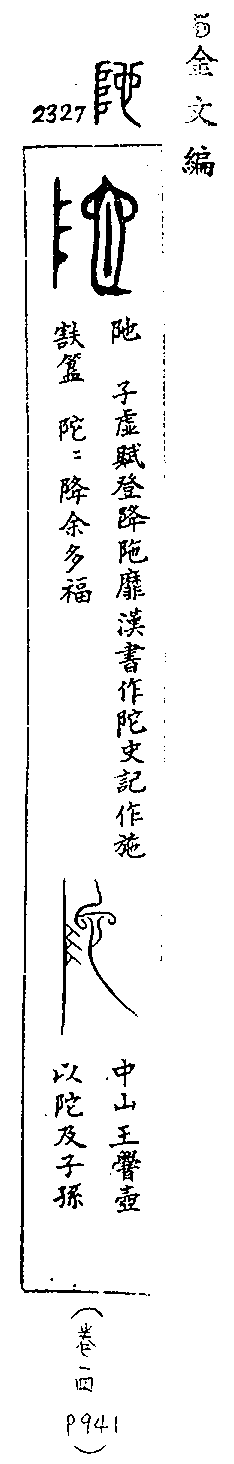 金文編
2327
阤 子虛賦登降阤靡漢書作陀史記作施
㝬簋 陀﹦降余多福
中山王𰯼壺
以陀及子孫
(卷一四
P941)